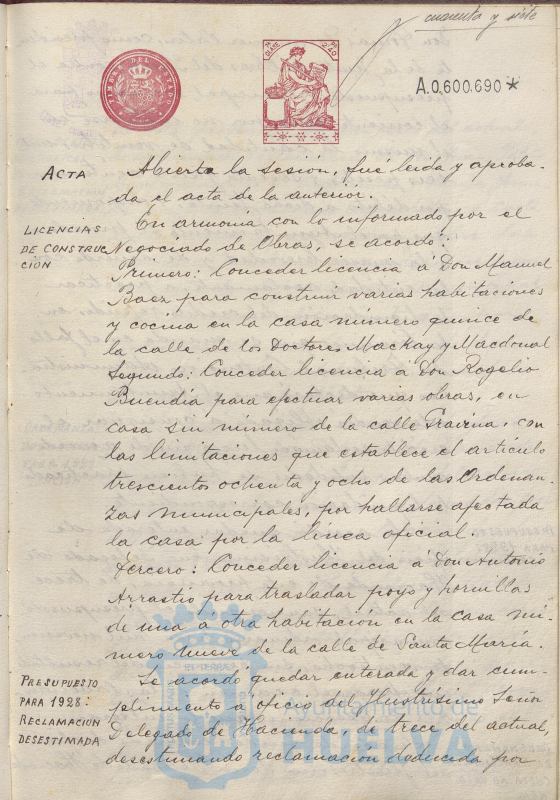 cuarenta y siete
TIMBRE DEL ESTADO
8ª CLASE
Ps 2'40
A.0,600,690*
ACTA
Abierta la sesión, fué leida y aproba-
da el acta de la anterior.
LICENCIAS
DE CONSTRUC
CION
En armonia con lo informado por el
Negociado de Obras, se acordó:
Primero: Conceder licencia á Don Manuel
Baez para construir varias habitaciones
y cocina en la casa número quince de
la calle de los Doctores Mackay y Macdonal
Segundo: Conceder licencia a Don Rogelio
Buendia para efectuar varias obras, en
casa sin número de la calle Gravina, con
las limitaciones que establece el artículo
trescientos ochenta y ocho de las Ordenan-
zas municipales, por hallarse afectada
la casa por la linea oficial.
Tercero: Conceder licencia á Don Antonio
Arrastio para trasladar poyo y hornillas
de una á otra habitación en la casa nú-
mero nueve de la calle de Santa María.
PRESUPUESTO
PARA 1928:
RECLAMACION
DESESTIMADA
Se acordó quedar enterada y dar cum-
plimiento a oficio del Ilustrísimo Señor
Delegado de Hacienda, de trece del actual,
desestimando reclamación deducida por
Ayuntamiento de
HUELVA